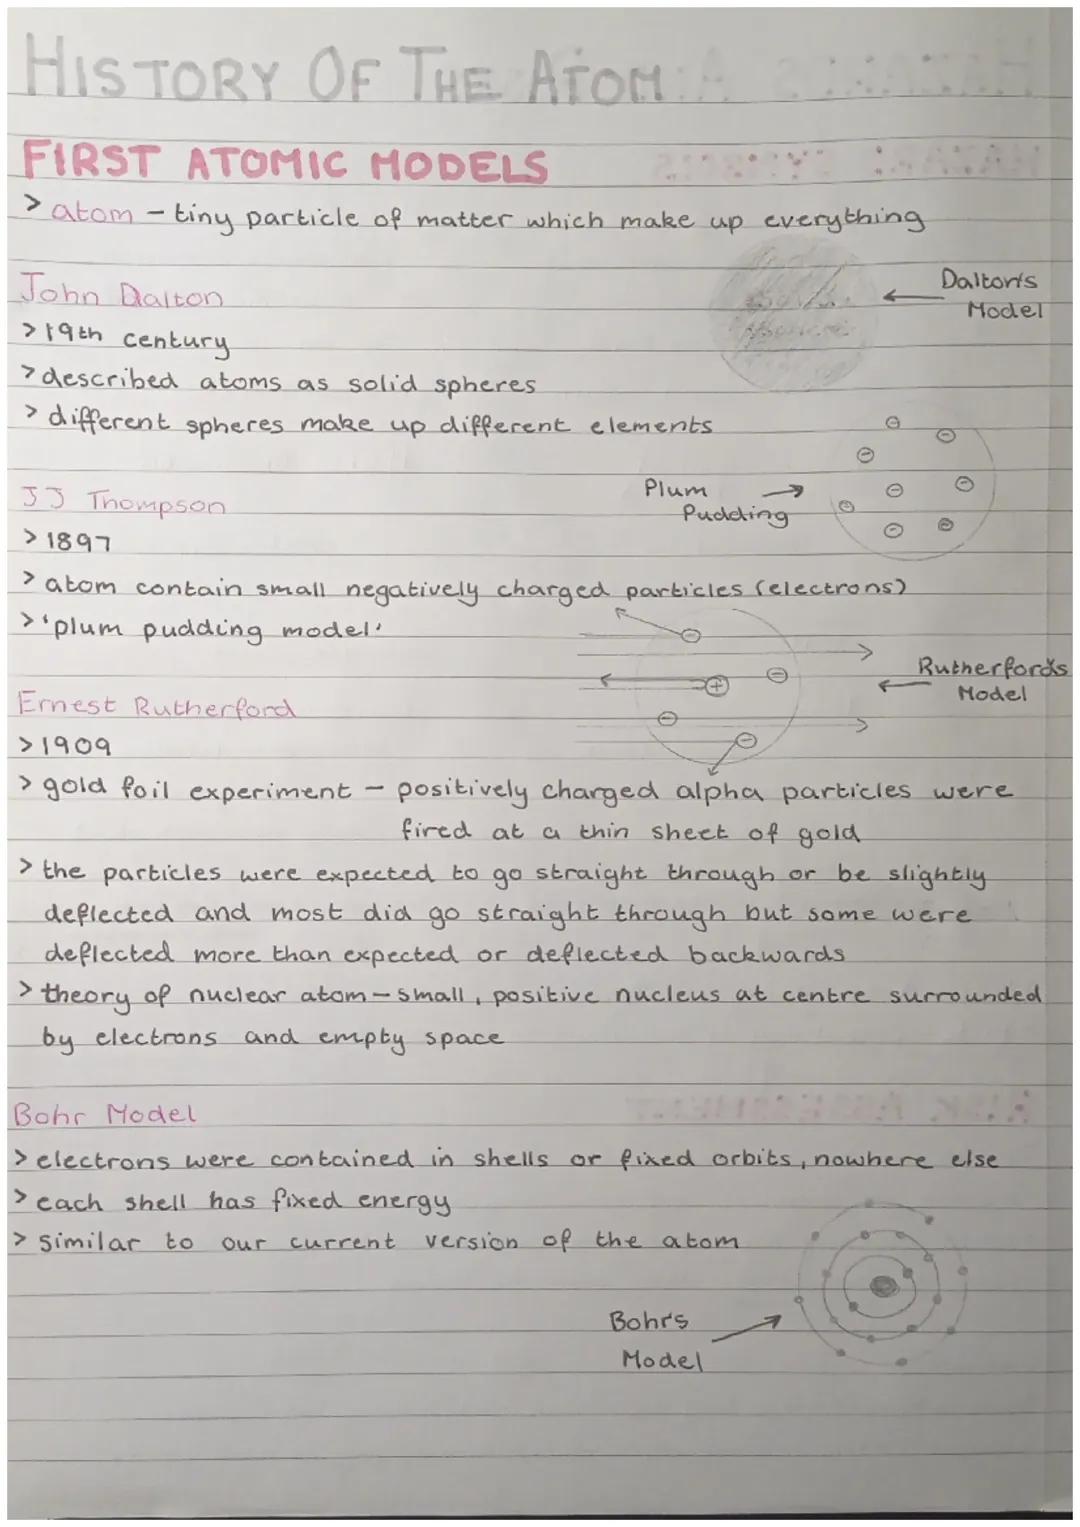 HISTORY OF THE ATOM
FIRST ATOMIC MODELS
> atom – tiny particle of matter which make up everything
John Dalton
Dalton's
Model
> 19th century
> described atoms as solid spheres
> different spheres make up different elements
JJ Thompson
Plum
Pudding
> 1897
> atom contain small negatively charged particles (electrons)
> 'plum pudding model'
Rutherford's
Model
Ernest Rutherford
> 1909
> gold foil experiment – positively charged alpha particles were
fired at a thin sheet of gold
> the particles were expected to go straight through or be slightly
deflected and most did go straight through but some were
deflected more than expected or deflected backwards
> theory of nuclear atom – small, positive nucleus at centre surrounded
by electrons and empty space
Bohr Model
> electrons were contained in shells or fixed orbits, nowhere else
> each shell has fixed energy
> similar to our current version of the atom
Bohr's
Model